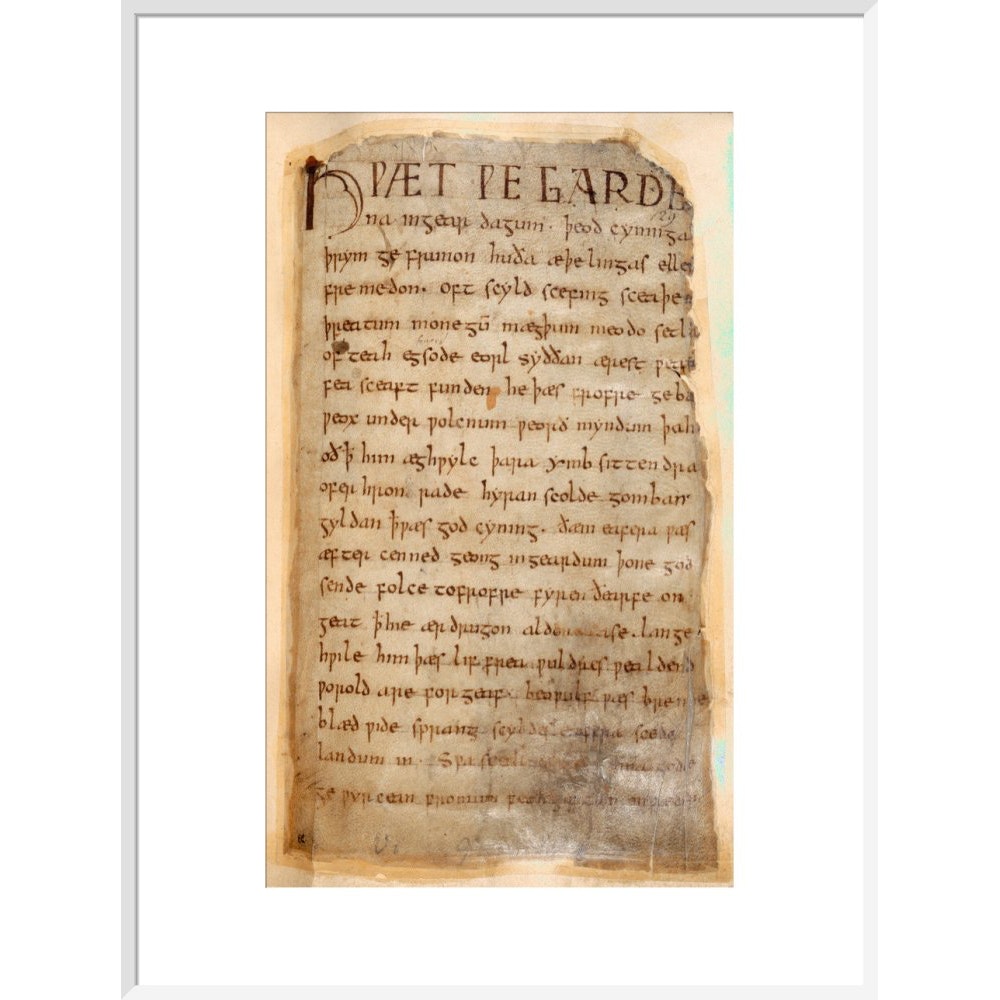 HǷÆT ǷE GARDE
na ingear dagum. þeod cyninga
þrym ge frunon huða æþelingas elle
fre medon. oft scyld scefing sceaþe
þreatum monegū mægþum meodo setla
of teah egsode eorl syððan ærest
fea sceaft funden he þæs frofre geba
ƿeox under ƿolcnum ƿeorð myndum þah
oð ꝥ him æghƿylc þara ymb sittendra
ofer hron rade hyran scolde gomban
gyldan ꝥ ƿæs god cyning. ðæm eafera ƿæs
æfter cenned geong ingeardum þone god
sende folce tofrofre fyren ðearfe on
geat ꝥ hie ær drugon aldor ase. lange
hƿile him þæs lif frea ƿuldres ƿealdend
ƿorold are for geaf. beoƿulf ƿæs breme
blæd ƿide sprang scyldes eafera scede
landum in. Sƿa sceal gode
ge ƿyrcean fromum feoh